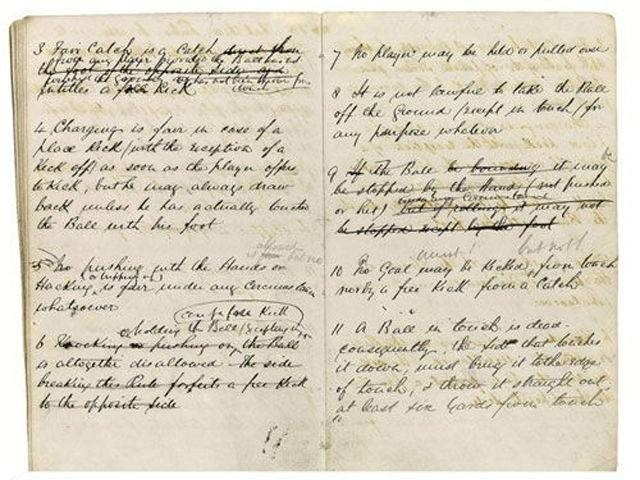 3 Fair Catch is a Catch direct from
from any player provided the Ball has not
the foot of the opposite side and
touched the ground has not been thrown from
entitles a free Kick
touch
4 Charging is fair in case of a
place Kick (with the exception of a
Kick off) as soon as the player offers
to Kick, but he may always draw
back unless he has actually touched
the Ball with his foot
5 No pushing with the Hands or
or tripping up
Hacking, is fair under any Circumstances
whatsoever
holding the Ball
6 Knocking or pushing on the Ball
is altogether disallowed The side
breaking this Rule forfeits a free Kick
to the opposite side
7 No player may be held or pulled over
8 It is not lawful to take the Ball
off the Ground (except in touch) for
any purpose whatever
be
9 If the Ball be bounding it may
be stopped by the Hand (not pushed
or hit) but if rolling it may not
be stopped except by the foot
but not
10 No Goal may be Kicked from touch
nor by a free Kick from a Catch
11 A Ball in touch is dead
consequently the side that touches
it down, must bring it to the edge
of touch, & throw it straight out
at least six yards from touch